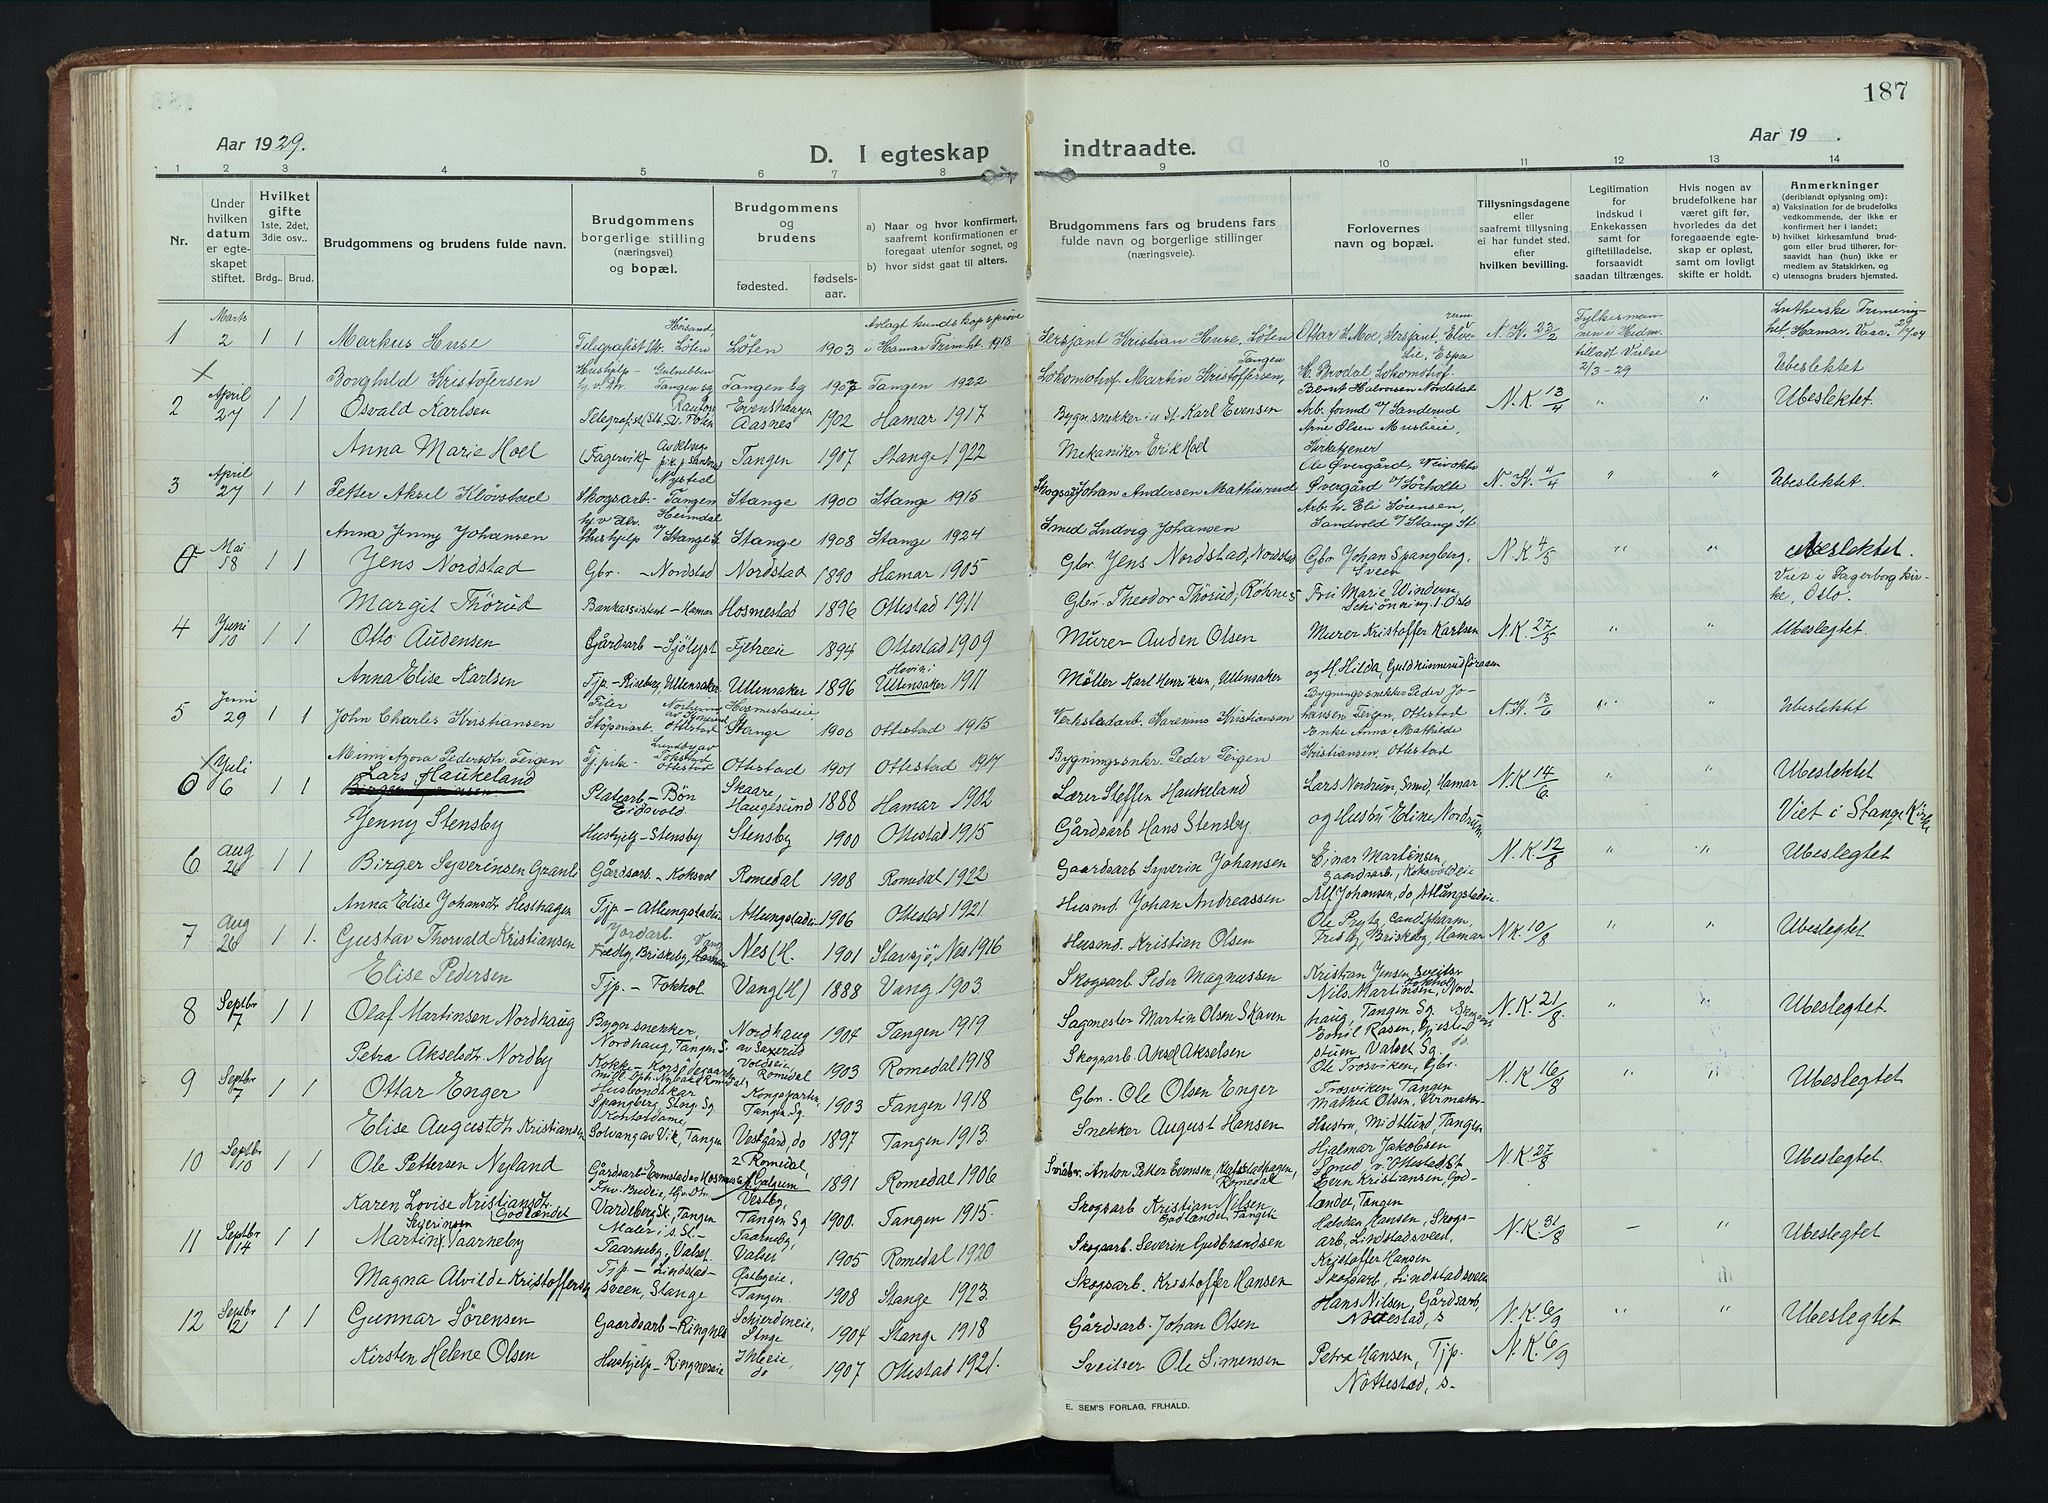 187
Aar 1929.
D. I egteskap
indtraadte.
Aar 19
1 2 3 4 5 6 7 8 9 10 11 12 13 14
Nr.
Under hvilken datum er egteskapet stiftet.
Hvilket gifte 1ste, 2det, 3die osv..
Brdg.. Brud.
Brudgommens og brudens fulde navn.
Brudgommens borgerlige stilling (næringsvei) og bopæl.
Brudgommens og brudens
fødested.
fødselsaar.
a) Naar og hvor konfirmert, saafremt konfirmationen er foregaat utenfor sognet, og
b) hvor sidst gaat til alters.
Brudgommens fars og brudens fars fulde navn og borgerlige stillinger (næringsveie).
Forlovernes navn og bopæl.
Tillysningsdagene eller saafremt tillysning ei har fundet sted, efter hvilken bevilling.
Legitimation for indskud i Enkekassen samt for giftetilladelse, forsaavidt saadan tiltrænges.
Hvis nogen av brudefolkene har været gift før, hvorledes da det foregaaende egteskap er opløst, samt om lovligt skifte er holdt.
Anmerkninger (deriblandt oplysning om):
a) Vaksination for de brudefolks vedkommende, der ikke er konfirmert her i landet;
b) hvilket kirkesamfund brudgom eller brud tilhører, forsaavidt han (hun) ikke er medlem av Statskirken, og
c) utensogns bruders hjemsted.
1 Marts 2 1 1 Markus Huse Telegrafist Løten Løten 1903 Avlagt kundskapsprøve i Hamar Frimht. 1918 Sersjant Kristian Huse, Løten Ottar L. Moe, Sersjant, Elverum N.K. 23/2 Fylkesmannen i Hedm. tilladt Vielse 2/3-29 Lutherske Frimenighet, Hamar. Vacc. 2/7/04
Borghild Kristofersen Hushjelp Tangen 1907 Tangen 1922 Lokomotof. Martin Kristoffersen, Tangen K. Brodal Lokomotof. Ubeslektet
2 April 27 1 1 Osvald Karlsen Aasnes 1902 Hamar 1917 Bygn.snekker Karl Evensen N.K. 13/4 " " Ubeslektet.
Anna Marie Hoel (Fagervik) Tangen 1907 Stange 1922 Mekaniker Erik Hoel Arne Olsen Kirketjener
3 April 27 1 1 Petter Aksel Kløvstad Skogsarb. Tangen Stange 1900 Stange 1915 Skogsarb. Johan Andersen Mathisrud Ole Øvergård N.K. 4/4 " " Ubeslektet.
Anna Jenny Johansen Hushjelp Stange 1908 Stange 1924 Smed Ludvig Johansen Eli Sørensen, Sandvold v/ Stange St
Mai 18 1 1 Jens Nordstad Gbr. - Nordstad Nordstad 1890 Hamar 1905 Gbr. Jens Nordstad, Nordstad Gbr. Johan Spangberg, Sveen N.K. 4/5 " " Ubeslektet.
Margit Thörud Bankassistent - Hamar Hosmestad 1896 Ottestad 1911 Gbr. Theodor Thörud, Röhnes Fru Marie Windern, Schiönning 1. Oslo Viet i Fagerborg kirke, Oslo.
4 Juni 10 1 1 Otto Audensen Gårdsarb - Sjölyst Fjetreeie 1894 Ottestad 1909 Murer Auden Olsen Murer Kristoffer Karlsen N.K. 27/5 " " Ubeslegtet.
Anna Elise Karlsen Tjp. - Riseberg, Ullensaker Ullensaker 1896 Hovin i Ullensaker 1911 Möller Karl Henriksen, Ullensaker og H. Hilda
5 Juni 29 1 1 John Charles Kristiansen Støperiarb. Ottestad Hosmestadeie, Stange 1900 Ottestad 1915 Verkstadarb. Karenius Kristiansen Bygningssnekker Peder Johansen Teigen, Ottestad N.K. 13/6 " " Ubeslektet
Mimi Azora Pedersdtr. Teigen Ottestad 1901 Ottestad 1917 Bygningssnkr. Peder Teigen Enke Anna Mathilde Kristiansen, Ottestad
6 Juli 6 1 1 Lars Haukeland Platearb - Bön Eidsvold Skaare Haugesund 1888 Hamar 1902 Lærer Steffen Haukeland Lars Nordrum, Smed, Hamar N.K. 14/6 " " Ubeslektet
Jenny Stensby Hushjelp - Stensby Stensby 1900 Ottestad 1915 Gårdsarb Hans Stensby og Hustru Eline Nordrum Viet i Stange Kirke
6 Aug 26 1 1 Birger Syverinsen Granli Gårdsarb - Koksvol Romedal 1908 Romedal 1922 Gaardsarb Syverin Johansen Ejnar Martinsen, Gaardsarb. N.K. 12/8 " " Ubeslegtet
Anna Elise Johansdtr Hesthagen Tjp - 1906 Ottestad 1921 Husmd. Johan Andreassen Alf Johansen, do
7 Aug 26 1 1. Gustav Thorvald Kristiansen Jordarb. Fredly, Briskeby, Vang Nes (H. 1901 Stavsjö, Nes 1916 Husmd. Kristian Olsen Ole Prytz cand pharm, Fredly, Briskeby, Hamar N.K. 10/8 " " Ubeslegtet
Elise Pedersen Tjp. - Fokhol Vang (H) 1888 Vang 1903 Skogsarb Peder Magnussen Kristian Jensen sveitser Fokhol
8 Septbr 7 1 1 Olaf Martinsen Nordhaug Bygn.snekker, Nordhaug, Tangen S. Nordhaug av Saxerud 1904 Tangen 1919 Sagmester Martin Olsen Skaven Nils Martinsen, Nordhaug, Tangen Sg N.K. 21/8. " " Ubeslegtet.
Petra Akselsdtr Nordby Kokke - Voldseie, Romedal 1903 Romedal 1918 Skogsarb. Aksel Akselsen Valset Sg.
9 Septbr 7 1 1 Ottar Enger Husbondskar Spangberg, Stng. Sg Tangen Sg 1903 Tangen 1918 Gbr. Ole Olsen Enger Ole Trosviken, Gbr. Trosviken, Tangen N.K. 16/8 " " Ubeslegtet
Elise Augustdtr Kristiansen Solvang av Vik, Tangen Vestgård, do 1897 Tangen 1913. Snekker August Hansen Mathea Olsen, Urmakerhustru, Midtlund, Tangen
10 Septbr 10 1 1 Ole Pettersen Nyland Romedal, 1891 Romedal 1906 Anton Petter Evensen, Romedal Hjalmar Jakobsen Smed v. Ottestad St N.K. 27/8 Ubeslegtet.
Karen Lovise Kristiansdtr Godlændet Vardeberg Sk, Tangen Vestby, Tangen Sg 1900. Tangen 1915. Skogsarb Kristian Nilsen Godlændet Tangen Even Kristiansen, Godlændet, Tangen
11 Septbr 14 1 1 Martin Severinsen Taarneby Maler i s. St. - Taarneby, Valset Taarneby, Valset 1905 Romedal 1920 Skogsarb. Severin Gudbrandsen Halvdan Hansen, Skogsarb, Lindstadsveen N.K. 31/8 - " Ubeslegtet
Magna Alvilde Kristoffersen Tjp - Lindstadsveen, Stange Østbyeie, Tangen. 1908 Stange 1923. Skogsarb. Kristoffer Hansen Kristoffer Hansen Skogsarb, Lindstadsveen
12 Septbr 21 1 1 Gunnar Sörensen Gaardsarb - Ringnes Skjerdineie, Stnge 1904 Stange 1918 Gårdsarb. Johan Olsen Hans Nilsen, Gårdsarb, Nöttestad, s N.K. 6/9 " " Ubeslegtet
Kirsten Helene Olsen Hushjelp - Ringneseie Ihleeie, do 1907 Ottestad 1921. Sveitser Ole Simensen Petra Hansen, Tjp. Nöttestad, s- N.K. 6/9
E. SEM'S FORLAG, FR.HALD.